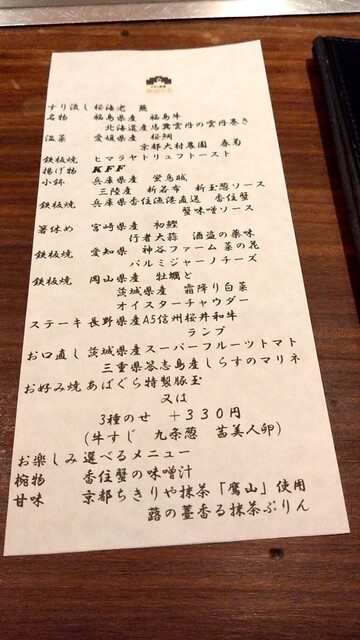 すり流し 桜海老 蕪
名物 福島県産 福島牛
北海道産馬糞雲丹の雲丹巻き
温菜 愛媛県産 桜鯛
京都大村農園 春菊
鉄板焼 ヒマラヤトリュフトースト
揚げ物 KFF
小鉢 兵庫県産 蛍烏賊
三陸産 新若布 新玉葱ソース
鉄板焼 兵庫県香住漁港直送 香住蟹
蟹味噌ソース
箸休め 宮崎県産 初鰹
行者大蒜 酒盗の薬味
鉄板焼 愛知県 神谷ファーム菜の花
パルミジャーノチーズ
鉄板焼 岡山県産 牡蠣と
茨城県産 霜降り白菜
オイスターチャウダー
ステーキ 長野県産A5信州桜井和牛
ランプ
お口直し 茨城県産スーパーフルーツトマト
三重県答志島産しらすのマリネ
お好み焼 あばぐら特製豚玉
又は
3種のせ +330円
(牛すじ 九条葱 茜美人卵)
お楽しみ 選べるメニュー
椀物 香住蟹の味噌汁
甘味 京都ちきりや抹茶「鷹山」使用
蕗の薹香る抹茶ぷりん